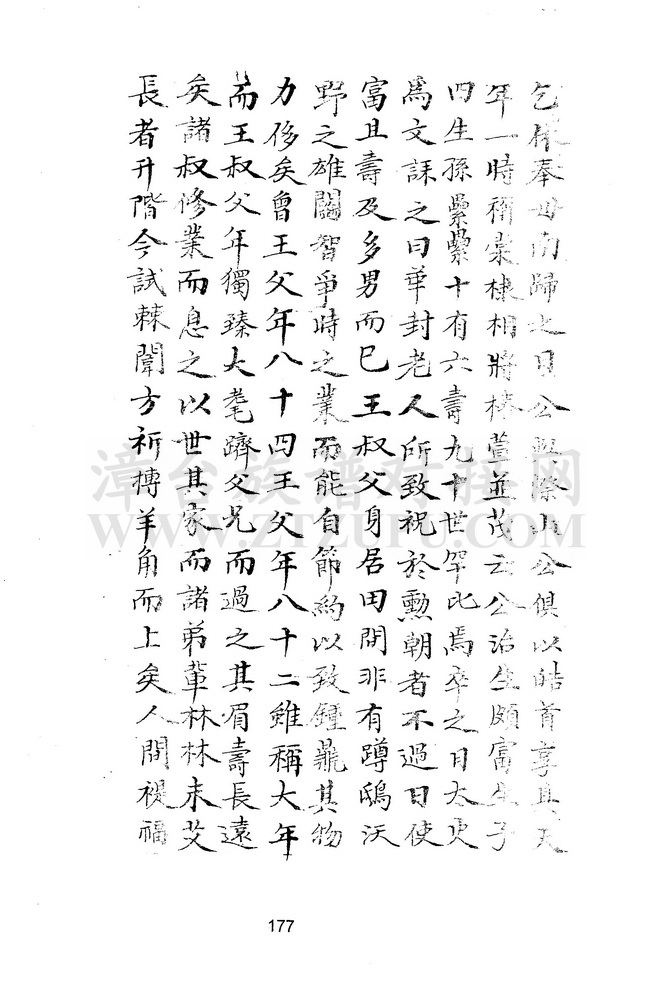 乞休奉母南歸之日公與際山公俱以皓首享其天
年一時稱棠棣相將椿萱並茂云公治生頗富生子
四生孫纍纍十有六壽九十世罕比焉卒之日太史
爲文誄之曰華封老人所致祝於勲朝者不過曰使
富且壽及多男而已王叔父身居田間非有蹲鴟沃
野之雄鬪智爭時之業而能自節約以致鍾鼎其物
力侈矣曾王父年八十四王父年八十二雖稱大年
而王叔父年獨臻大耄躋父兄而過之其眉壽長遠
矣諸叔修業而息之以世其家而諸弟輩林林未艾
長者升階今試棘闈方祈摶羊角而上矣人間禔福
漳台族譜对接网
WWW.ZTZUPU.COM
177